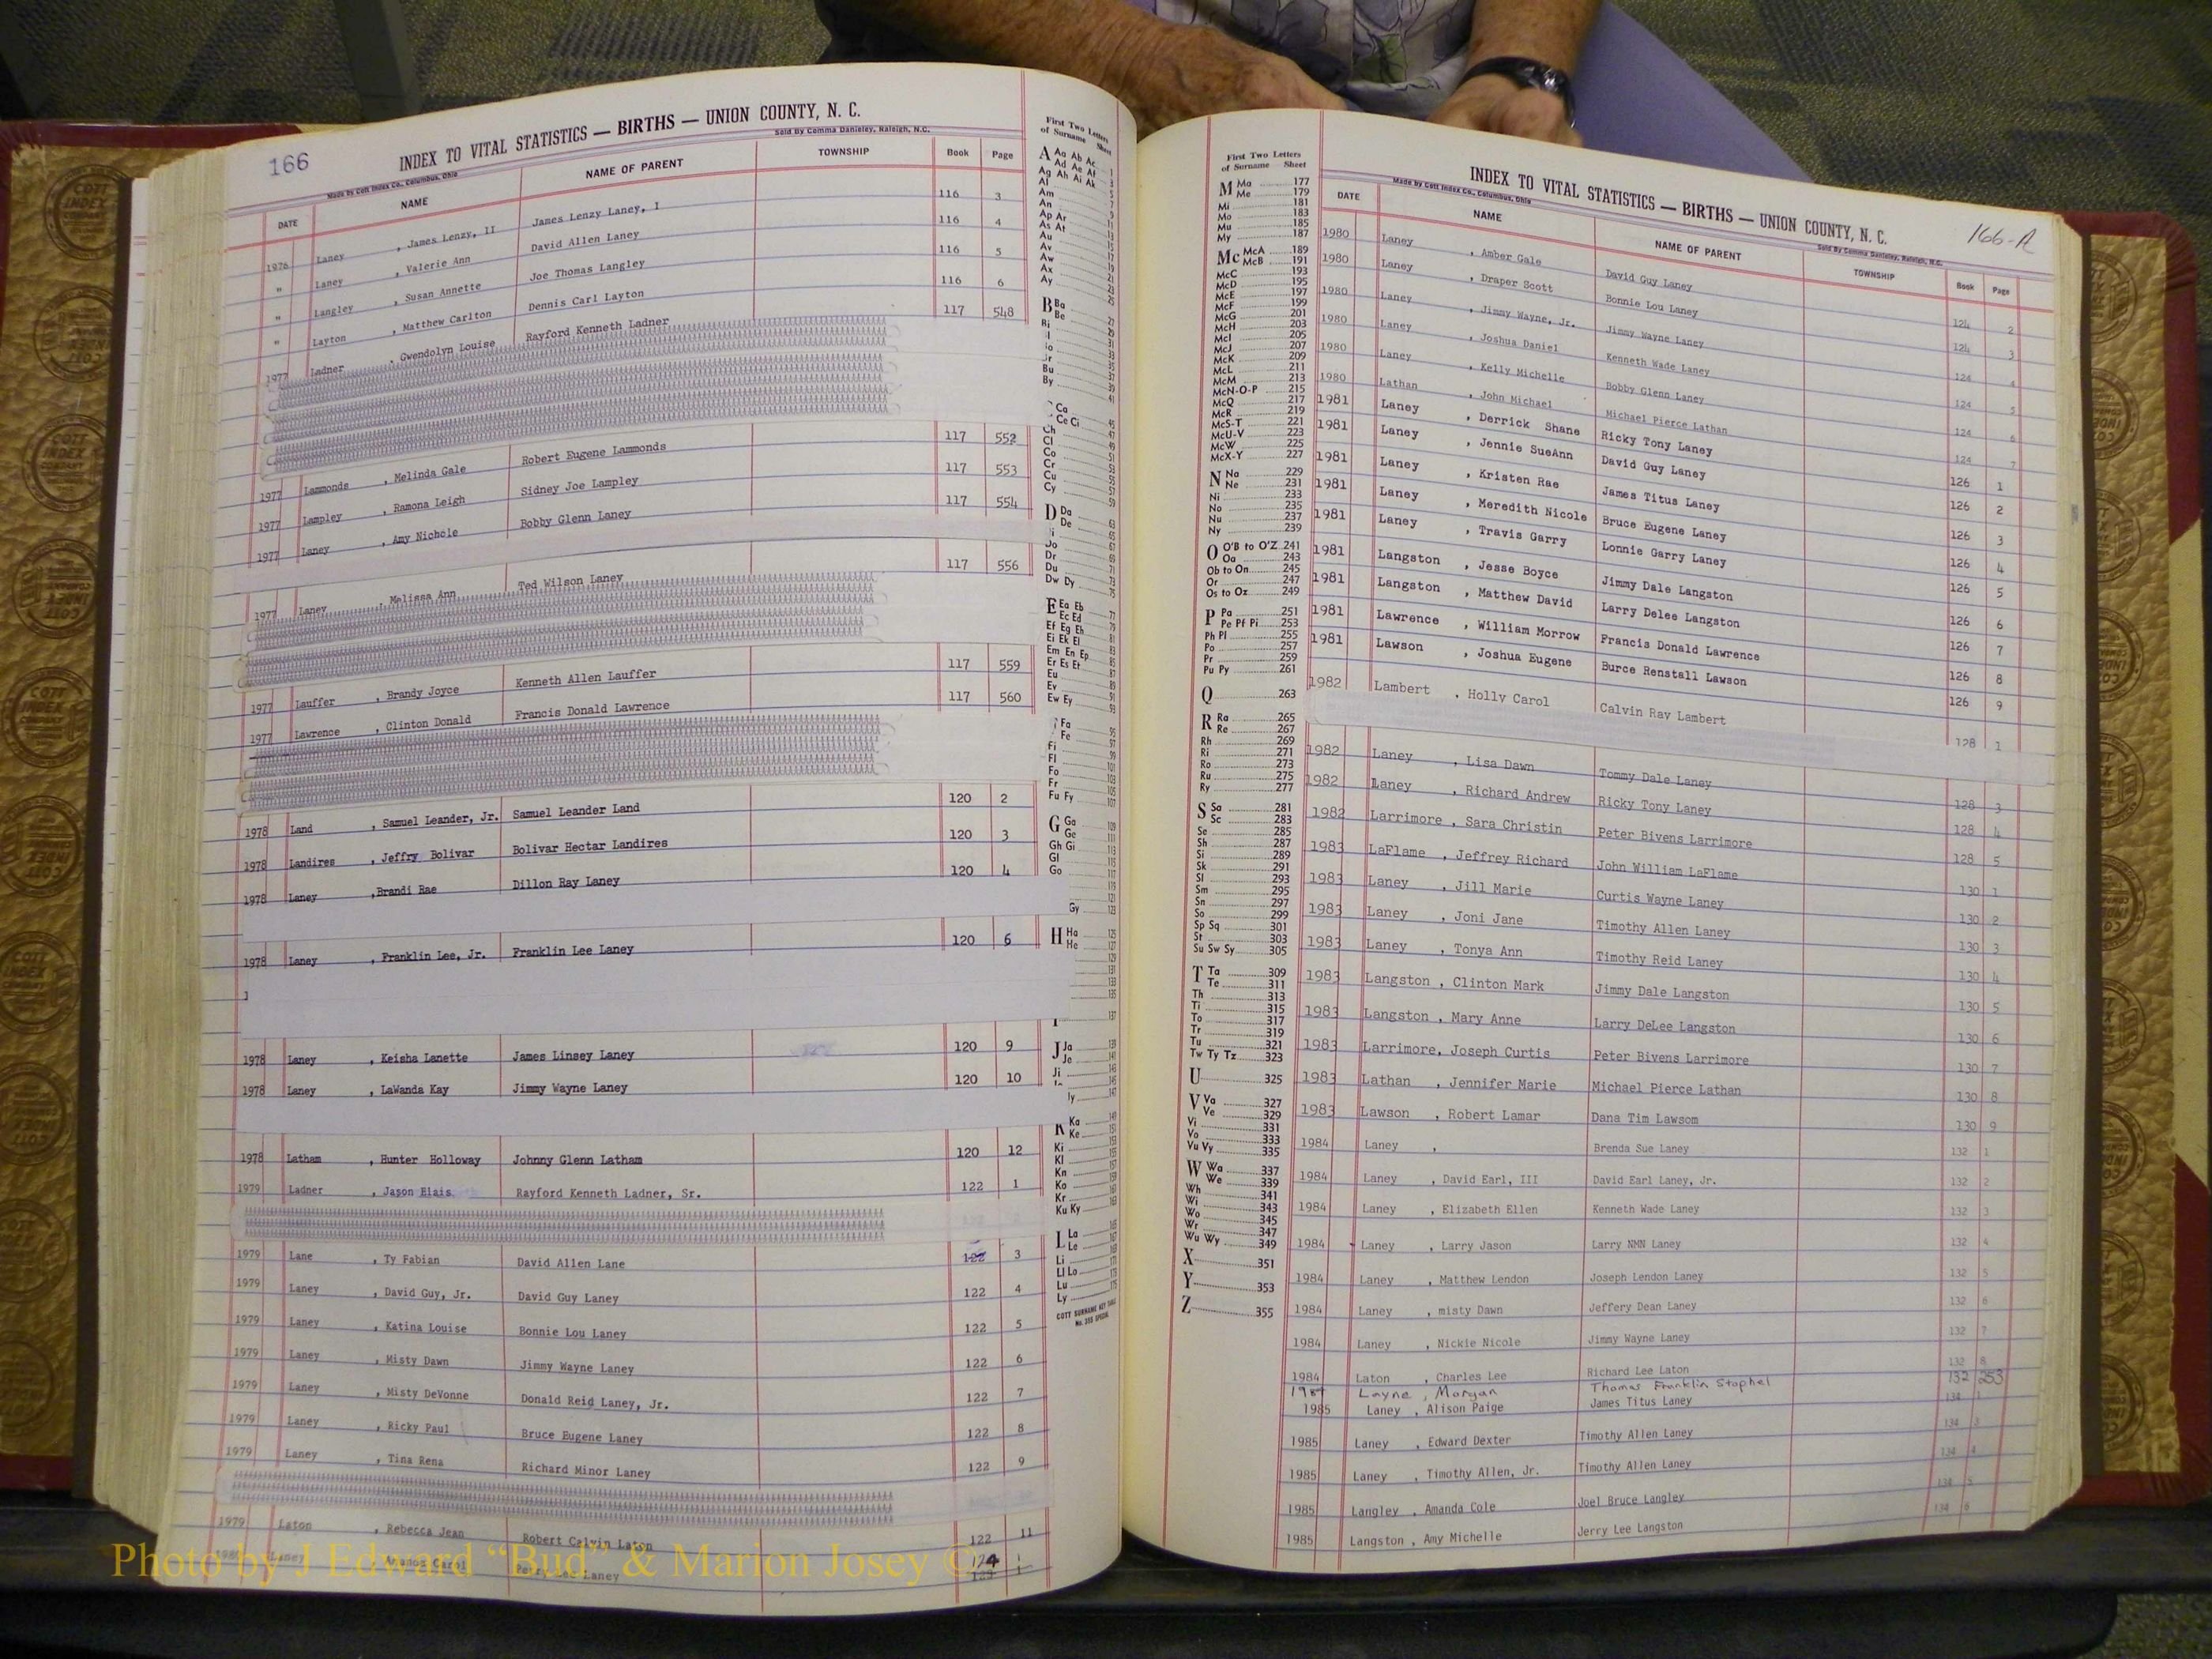 166
INDEX TO VITAL STATISTICS — BIRTHS — UNION COUNTY, N. C.
Made by Cott Index Co., Columbus, Ohio
Sold By Comma Danieley, Raleigh, N.C.
DATE NAME NAME OF PARENT TOWNSHIP Book Page
1976 Laney , James Lenzy, II James Lenzy Laney, I 116 3
" Laney , Valerie Ann David Allen Laney 116 4
" Langley , Susan Annette Joe Thomas Langley 116 5
" Layton , Matthew Carlton Dennis Carl Layton 116 6
1977 Ladner , Gwendolyn Louise Rayford Kenneth Ladner 117 548
1977 Lammonds , Melinda Gale Robert Eugene Lammonds 117 552
1977 Lampley , Ramona Leigh Sidney Joe Lampley 117 553
1977 Laney , Amy Nichole Bobby Glenn Laney 117 554
1977 Laney , Melissa Ann Ted Wilson Laney 117 556
1977 Lauffer , Brandy Joyce Kenneth Allen Lauffer 117 559
1977 Lawrence , Clinton Donald Francis Donald Lawrence 117 560
1978 Land , Samuel Leander, Jr. Samuel Leander Land 120 2
1978 Landires , Jeffry Bolivar Bolivar Hectar Landires 120 3
1978 Laney ,Brandi Rae Dillon Ray Laney 120 4
1978 Laney , Franklin Lee, Jr. Franklin Lee Laney 120 6
1978 Laney , Keisha Lanette James Linsey Laney 120 9
1978 Laney , LaWanda Kay Jimmy Wayne Laney 120 10
1978 Latham , Hunter Holloway Johnny Glenn Latham 120 12
1979 Ladner , Jason Blais Rayford Kenneth Ladner, Sr. 122 1
1979 Lane , Ty Fabian David Allen Lane 122 3
1979 Laney , David Guy, Jr. David Guy Laney 122 4
1979 Laney , Katina Louise Bonnie Lou Laney 122 5
1979 Laney , Misty Dawn Jimmy Wayne Laney 122 6
1979 Laney , Misty DeVonne Donald Reid Laney, Jr. 122 7
1979 Laney , Ricky Paul Bruce Eugene Laney 122 8
1979 Laney , Tina Rena Richard Minor Laney 122 9
1979 Laton , Rebecca Jean Robert Calvin Laton 122 11
Laney Carol Laney 124 1
First Two Letters
of Surname Sheet
A Aa Ab Ac 1
Ad Ae Af
Ag Ah Ai Ak
Al
Am
An
Ap Ar
As At
Au
Av
Aw
Ax
Ay
B Ba
Be
Bu
By
Ca
Ce Ci
Ch
Cl
Co
Cr
Cu
Cy
D Da
De
Do
Dr
Du
Dw Dy
E Ea Eb
Ec Ed
Ef Eg Eh
Ei Ek El
Em En Ep
Er Es Et
Eu
Ev
Ew Ey
Fa
Fe
Fi
Fl
Fo
Fr
Fu Fy
G Ga
Ge
Gh Gi
Gl
Go
Gy
H Ha
He
J Ja
Je
Ji
K Ka
Ke
Ki
Kl
Kn
Ko
Kr
Ku Ky
L La
Le
Li
Ll Lo
Lu
Ly
COTT SURNAME KEY TABLE
First Two Letters
of Surname Sheet
M Ma 177
Me 179
Mi 181
Mo 183
Mu 185
My 187
Mc McA 189
McB 191
McC 193
McD 195
McE 197
McF 199
McG 201
McH 203
McI 205
McJ 207
McK 209
McL 211
McM 213
McN-O-P 215
McQ 217
McR 219
McS-T 221
McU-V 223
McW 225
McX-Y 227
N Na 229
Ne 231
Ni 233
No 235
Nu 237
Ny 239
O O'B to O'Z 241
Oa 243
Ob to On 245
Or 247
Os to Oz 249
P Pa 251
Pe Pf Pi 253
Ph Pl 255
Po 257
Pr 259
Pu Py 261
Q 263
R Ra 265
Re 267
Rh 269
Ri 271
Ro 273
Ru 275
Ry 277
S Sa 281
Sc 283
Se 285
Sh 287
Si 289
Sk 291
Sl 293
Sm 295
Sn 297
So 299
Sp Sq 301
St 303
Su Sw Sy 305
T Ta 309
Te 311
Th 313
Ti 315
To 317
Tr 319
Tu 321
Tw Ty Tz 323
U 325
V Va 327
Ve 329
Vi 331
Vo 333
Vu Vy 335
W Wa 337
We 339
Wh 341
Wi 343
Wo 345
Wr 347
Wu Wy 349
X 351
Y 353
Z 355
INDEX TO VITAL STATISTICS — BIRTHS — UNION COUNTY, N. C. 166-A
Made by Cott Index Co., Columbus, Ohio
Sold By Comma Danieley, Raleigh, N.C.
DATE NAME NAME OF PARENT TOWNSHIP Book Page
1980 Laney , Amber Gale David Guy Laney 124 2
1980 Laney , Draper Scott Bonnie Lou Laney 124 3
1980 Laney , Jimmy Wayne, Jr. Jimmy Wayne Laney 124 4
1980 Laney , Joshua Daniel Kenneth Wade Laney 124 5
1980 Laney , Kelly Michelle Bobby Glenn Laney 124 6
1980 Lathan , John Michael Michael Pierce Lathan 124 7
1981 Laney , Derrick Shane Ricky Tony Laney 126 1
1981 Laney , Jennie SueAnn David Guy Laney 126 2
1981 Laney , Kristen Rae James Titus Laney 126 3
1981 Laney , Meredith Nicole Bruce Eugene Laney 126 4
1981 Laney , Travis Garry Lonnie Garry Laney 126 5
1981 Langston , Jesse Boyce Jimmy Dale Langston 126 6
1981 Langston , Matthew David Larry Delee Langston 126 7
1981 Lawrence , William Morrow Francis Donald Lawrence 126 8
1981 Lawson , Joshua Eugene Burce Renstall Lawson 126 9
1982 Lambert , Holly Carol Calvin Ray Lambert 128 1
1982 Laney , Lisa Dawn Tommy Dale Laney 128 3
1982 Laney , Richard Andrew Ricky Tony Laney 128 4
1982 Larrimore , Sara Christin Peter Bivens Larrimore 128 5
1983 LaFlame , Jeffrey Richard John William LaFlame 130 1
1983 Laney , Jill Marie Curtis Wayne Laney 130 2
1983 Laney , Joni Jane Timothy Allen Laney 130 3
1983 Laney , Tonya Ann Timothy Reid Laney 130 4
1983 Langston , Clinton Mark Jimmy Dale Langston 130 5
1983 Langston , Mary Anne Larry DeLee Langston 130 6
1983 Larrimore, Joseph Curtis Peter Bivens Larrimore 130 7
1983 Lathan , Jennifer Marie Michael Pierce Lathan 130 8
1983 Lawson , Robert Lamar Dana Tim Lawsom 130 9
1984 Laney , Brenda Sue Laney 132 1
1984 Laney , David Earl, III David Earl Laney, Jr. 132 2
1984 Laney , Elizabeth Ellen Kenneth Wade Laney 132 3
1984 Laney , Larry Jason Larry NMN Laney 132 4
1984 Laney , Matthew Lendon Joseph Lendon Laney 132 5
1984 Laney , misty Dawn Jeffery Dean Laney 132 6
1984 Laney , Nickie Nicole Jimmy Wayne Laney 132 7
1984 Laton , Charles Lee Richard Lee Laton 132 8
1984 Layne , Morgan Thomas Franklin Stophel 132 253
1985 Laney , Alison Paige James Titus Laney 134 1
1985 Laney , Edward Dexter Timothy Allen Laney 134 3
1985 Laney , Timothy Allen, Jr. Timothy Allen Laney 134 4
1985 Langley , Amanda Cole Joel Bruce Langley 134 5
1985 Langston , Amy Michelle Jerry Lee Langston 134 6
Photo by J Edward “Bud” & Marion Josey ©